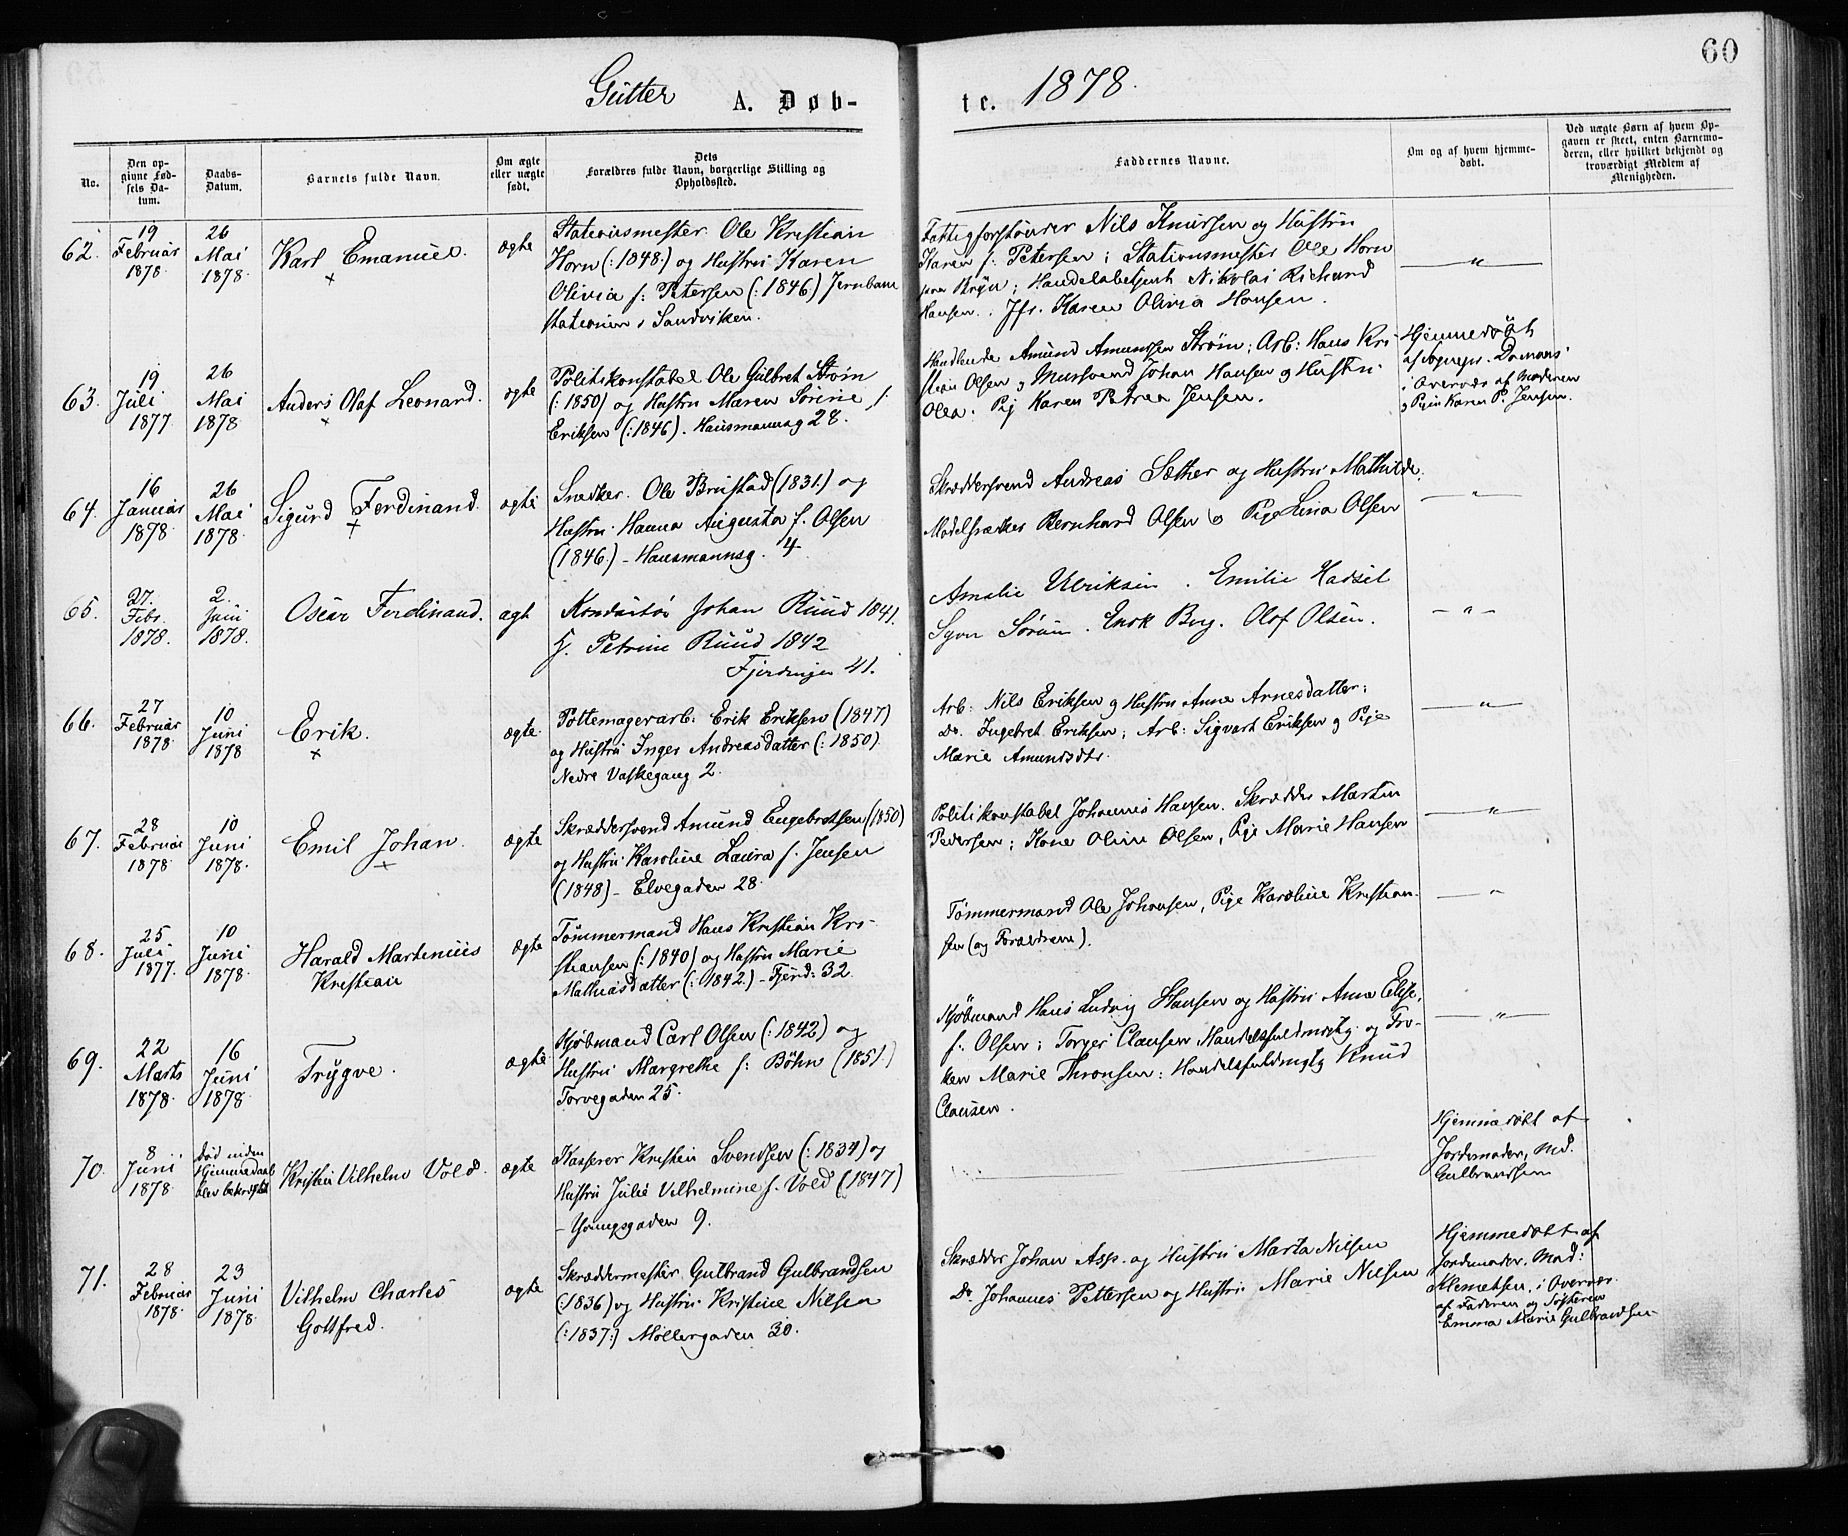 60
Gutter A. Døb- te. 1878.
No.
Den op-
givne Fød-
sels Da-
tum.
Daabs-
Datum.
Barnets fulde Navn.
Om ægte
eller uægte
født.
Dets
Forældres fulde Navn, borgerlige Stilling og
Opholdssted.
Faddernes Navne.
Om og af hvem hjemme-
døbt.
Ved uægte Børn af hvem Op-
gaven er skeet, enten Barnemo-
deren, eller hvilket bekjendt og
troværdigt Medlem af
Menigheden.
62.
19
Februar
1878.
26
Mai
1878.
Karl Emanuel.
ægte
Stationsmester Ole Kristian
Horn (:1848:) og Hustru Karen
Olivia f: Petersen (:1846) Jernbane
stationen i Sandviken.
Fattigforstander Nils Knudsen og Hustru
Karen f. Petersen; Stationsmester Ole Horn
Bryn; Handelsbetjent Nikolai Richard
Hansen. Jfr. Karen Olivia Hansen.
— " —
63.
19
Juli
1877.
26
Mai
1878.
Anders Olaf Leonard.
ægte
Politikonstabel Ole Gulbret Strøm
(:1850) og Hustru Maren Sørine f:
Eriksen (:1846). Hausmannsg 28.
Handlende Amund Amundsen Strøm; Arb: Hans Kri-
stian Olsen og Mursvend Johan Hansen og Hustru
Olea. Pig Karen Petrea Jensen.
Hjemmedøbt
af Sognepr.
i Overvær af Moderen
og Pigen Karen P. Jensen.
64.
16
Januar
1878.
26
Mai
1878.
Sigurd Ferdinand.
ægte
Snedker Ole Brustad (1831) og
Hustru Hanna Augusta f. Olsen
(1846) – Hausmannsg. 4.
Skræddersvend Andreas Sæther og Hustru Mathilde.
Bernhard Olsen o Pige Lina Olsen
— " —
65.
27.
Febr.
1878.
2.
Juni
1878.
Oscar Ferdinand.
ægt
Konduktør Johan Ruud 1841.
f. Petrine Ruud 1842
Fjerdingen 41.
Amalie Ulriksen. Emilie Hadsel
Syver Sørum. Enok Berg. Olof Olsen.
— " —
66.
27
Februar
1878.
10
Juni
1878
Erik.
ægte.
Pottemagerarb. Erik Eriksen (1847)
og Hustru Inger Andreasdatter (:1850).
Nedre Vaskegang 2.
Arb: Nils Eriksen g Hustru Anne Arnesdatter;
Do. Ingebret Eriksen; Arb: Sigvart Eriksen g Pige
Marie Amundsdtr.
— " —
67.
28
Februar
1878
10
Juni
1878.
Emil Johan.
ægte
Skræddersvend Amund Engebretsen (1850)
og Hustru Karoline Laura f. Jensen
(1848) – Elvegaden 28.
Politikonstabel Johannes Hansen. Skrædder Martin
Pedersen; Kone Oline Olsen, Pige Marie Hansen
— " —
68.
25
Juli
1877.
10
Juni
1878.
Harald Martinius
Kristian
ægte
Tømmermand Hans Kristian Kri-
stiansen (:1840) og Hustru Marie
Mathiasdatter (:1842.) – Fjerd: 32
Tømmermand Ole Johansen, Pige Karoline Kristian-
sen (og Forældrene).
— " —
69.
22
Marts
1878
16
Juni
1878
Trygve.
ægte
Kjøbmand Carl Olsen (:1842) og
Hustru Margrethe f: Bøhn (1851.)
Torvegaden 25.
Kjøbmand Hans Ludvig Hansen og Hustru Anne Elise,
f: Olsen; Torger Clausen Handelsfuldmægtig og Frø-
ken Marie Thronsen: Handelsfuldmægtig Knud
Clausen.
— " —
70.
8
Juni
1878
død inden
Hjemmedaab
blev bekræftet
Kristian Vilhelm Vold.
ægte
Kasserer Kristian Svendsen (:1834) og
Hustru Julie Vilhelmine f. Vold (1847)
– Youngsgaden 9.
Hjemmedøbt af
Jordemoder, Md.
Gulbrandsen
71.
28
Februar
1878
23
Juni
1878.
Vilhelm Charles
Gottfred.
ægte
Skræddermester Gulbrand Gulbrandsen
(:1836) og Hustru Kristine Nilsen
(:1837:) Møllergaden 30.
Skrædder Johan Asp. og Hustru Marta Nilsen
Do. Johannes Pettersen og Hustru Marie Nilsen
Hjemmedøbt af
Jordemoder Mad:
Klemetsen, i Overvær
af Faderen og Søsteren
Emma Marie Gulbrandsen